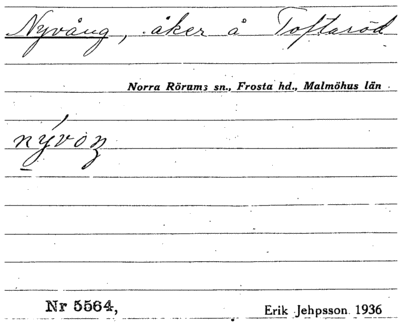 Nyvång, åker å Toftaröd
Norra Rörums sn., Frosta hd., Malmöhus län
Nr 5564,
Erik Jehpsson 1936